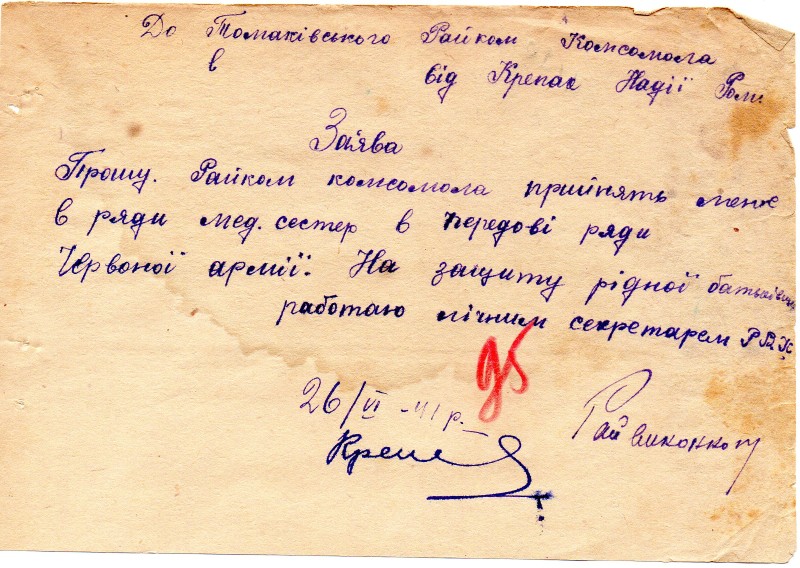 До Томаківського Райком Комсомола
в від Крепак Надії Ром.
Заява
Прошу. Райком комсомола прийнять мене
в ряди мед. сестер в передові ряди
Червоної армії. На защиту рідної батьківщ
работаю лічним секретарем РВК
95
26/VI -41 р.
Райвиконком
Креп